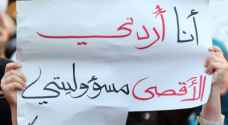 أنا أردني
الأقصى مسؤوليتي